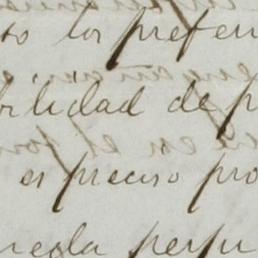 to los prefer
bilidad de p
es preciso pro
regla perju